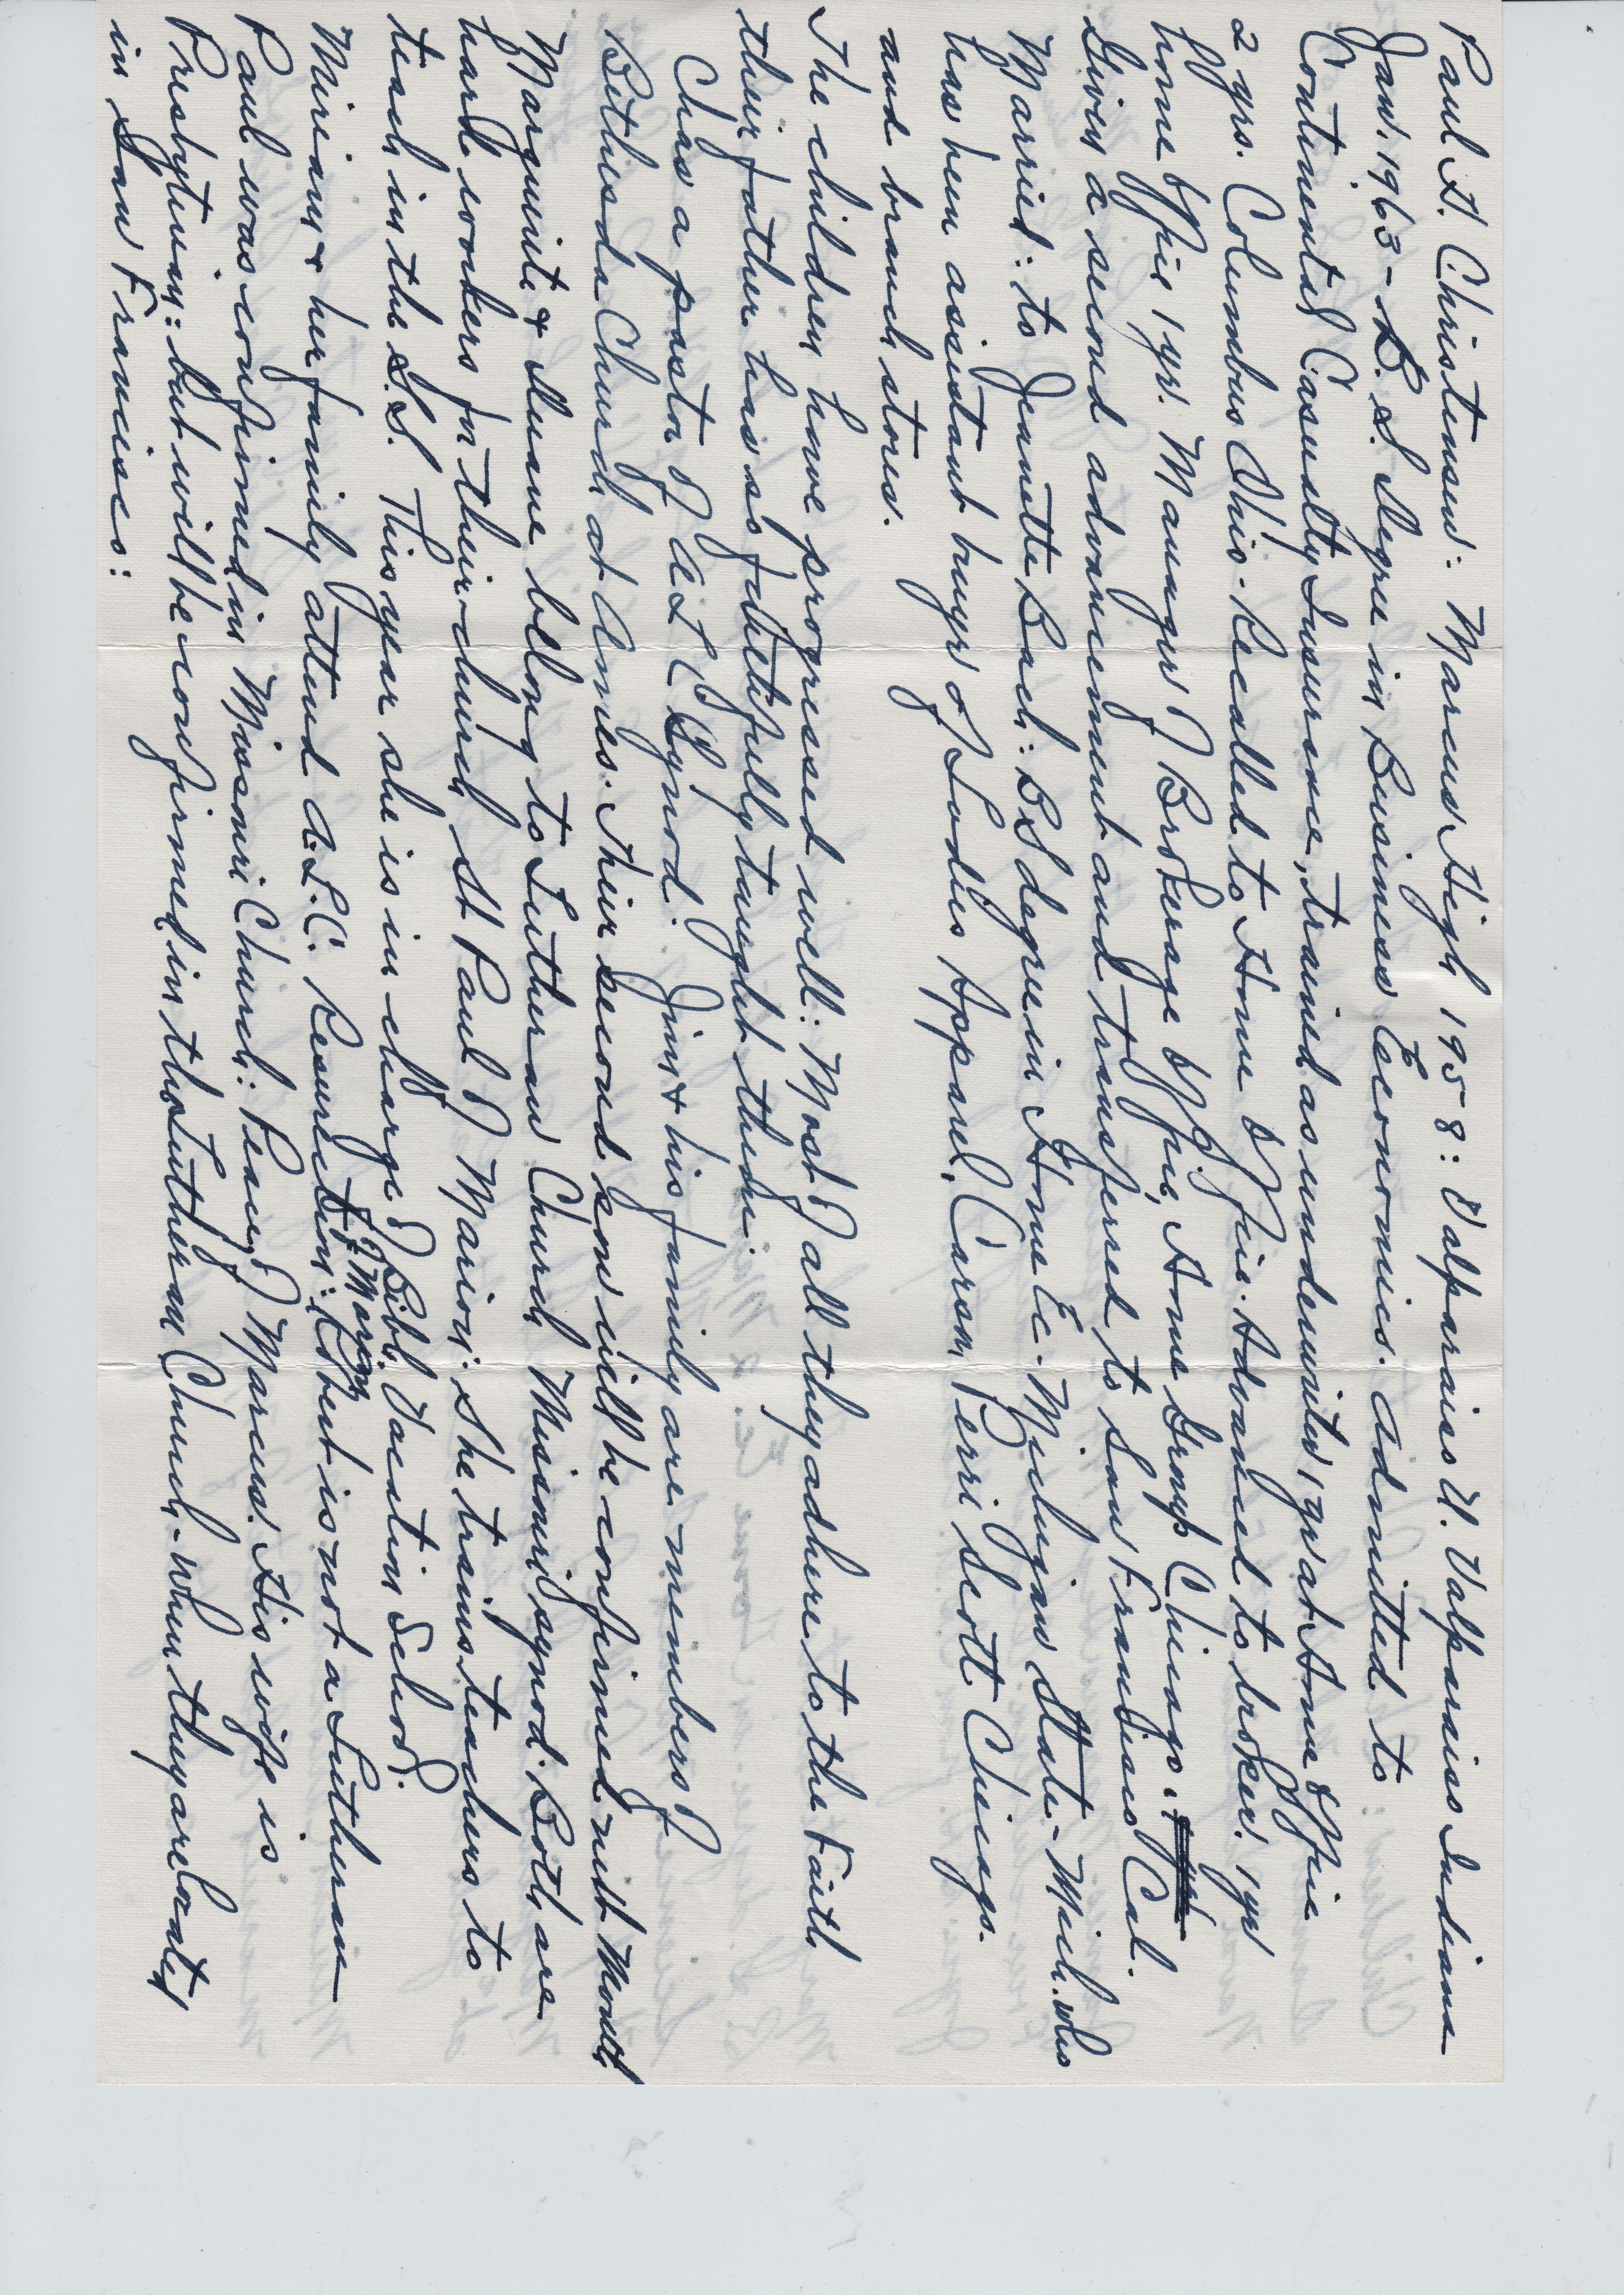 Paul A. Christensen: Marcus High 1958: Valparaiso U. Valparaiso Indiana
Jan. 1963 - B.S. Degree in Business Economics. Admitted to
Continental Casualty Insurance, trained as underwriter, 1 yr at Home Office
2 yrs. Columbus Ohio - Recalled to Home Office. Advanced to broker. 1 yr
home office 1 yr. Manager of Brokerage Office, Home Group Chicago.
Given a second advancement and transferred to San Fransisco Cal.
Married: to Jeanette Bach: BS degree in Home Ec. Michigan State - Mich. who
has been assistant buyer of Ladies Apparel, Carson Perri Scott Chicago.
and branch stores.
The children have progressed well: Most of all they adhere to the Faith
their father has so faithfully taught them.
Chas a pastor of ALC Synod. Jim & his family are members of
Bethesda Church at Ames. Their second son will be confirmed next Month
Marguerite & Duane belong to Lutheran Church Missouri synod. Both are
hard workers for their church St Paul of Marion: She trains teachers to
teach in the S.S. This year she is in charge of Bibl Vaction School.
Miriam & her family attend A.L.C. Resurection: of Marion Robert is not a Lutheran
Paul was confirmed in Missouri Church: Peace of Marcus. His wife is
Presbyterian: but will be confirmed in the Lutheran Church - when they are located
in San Francisco: